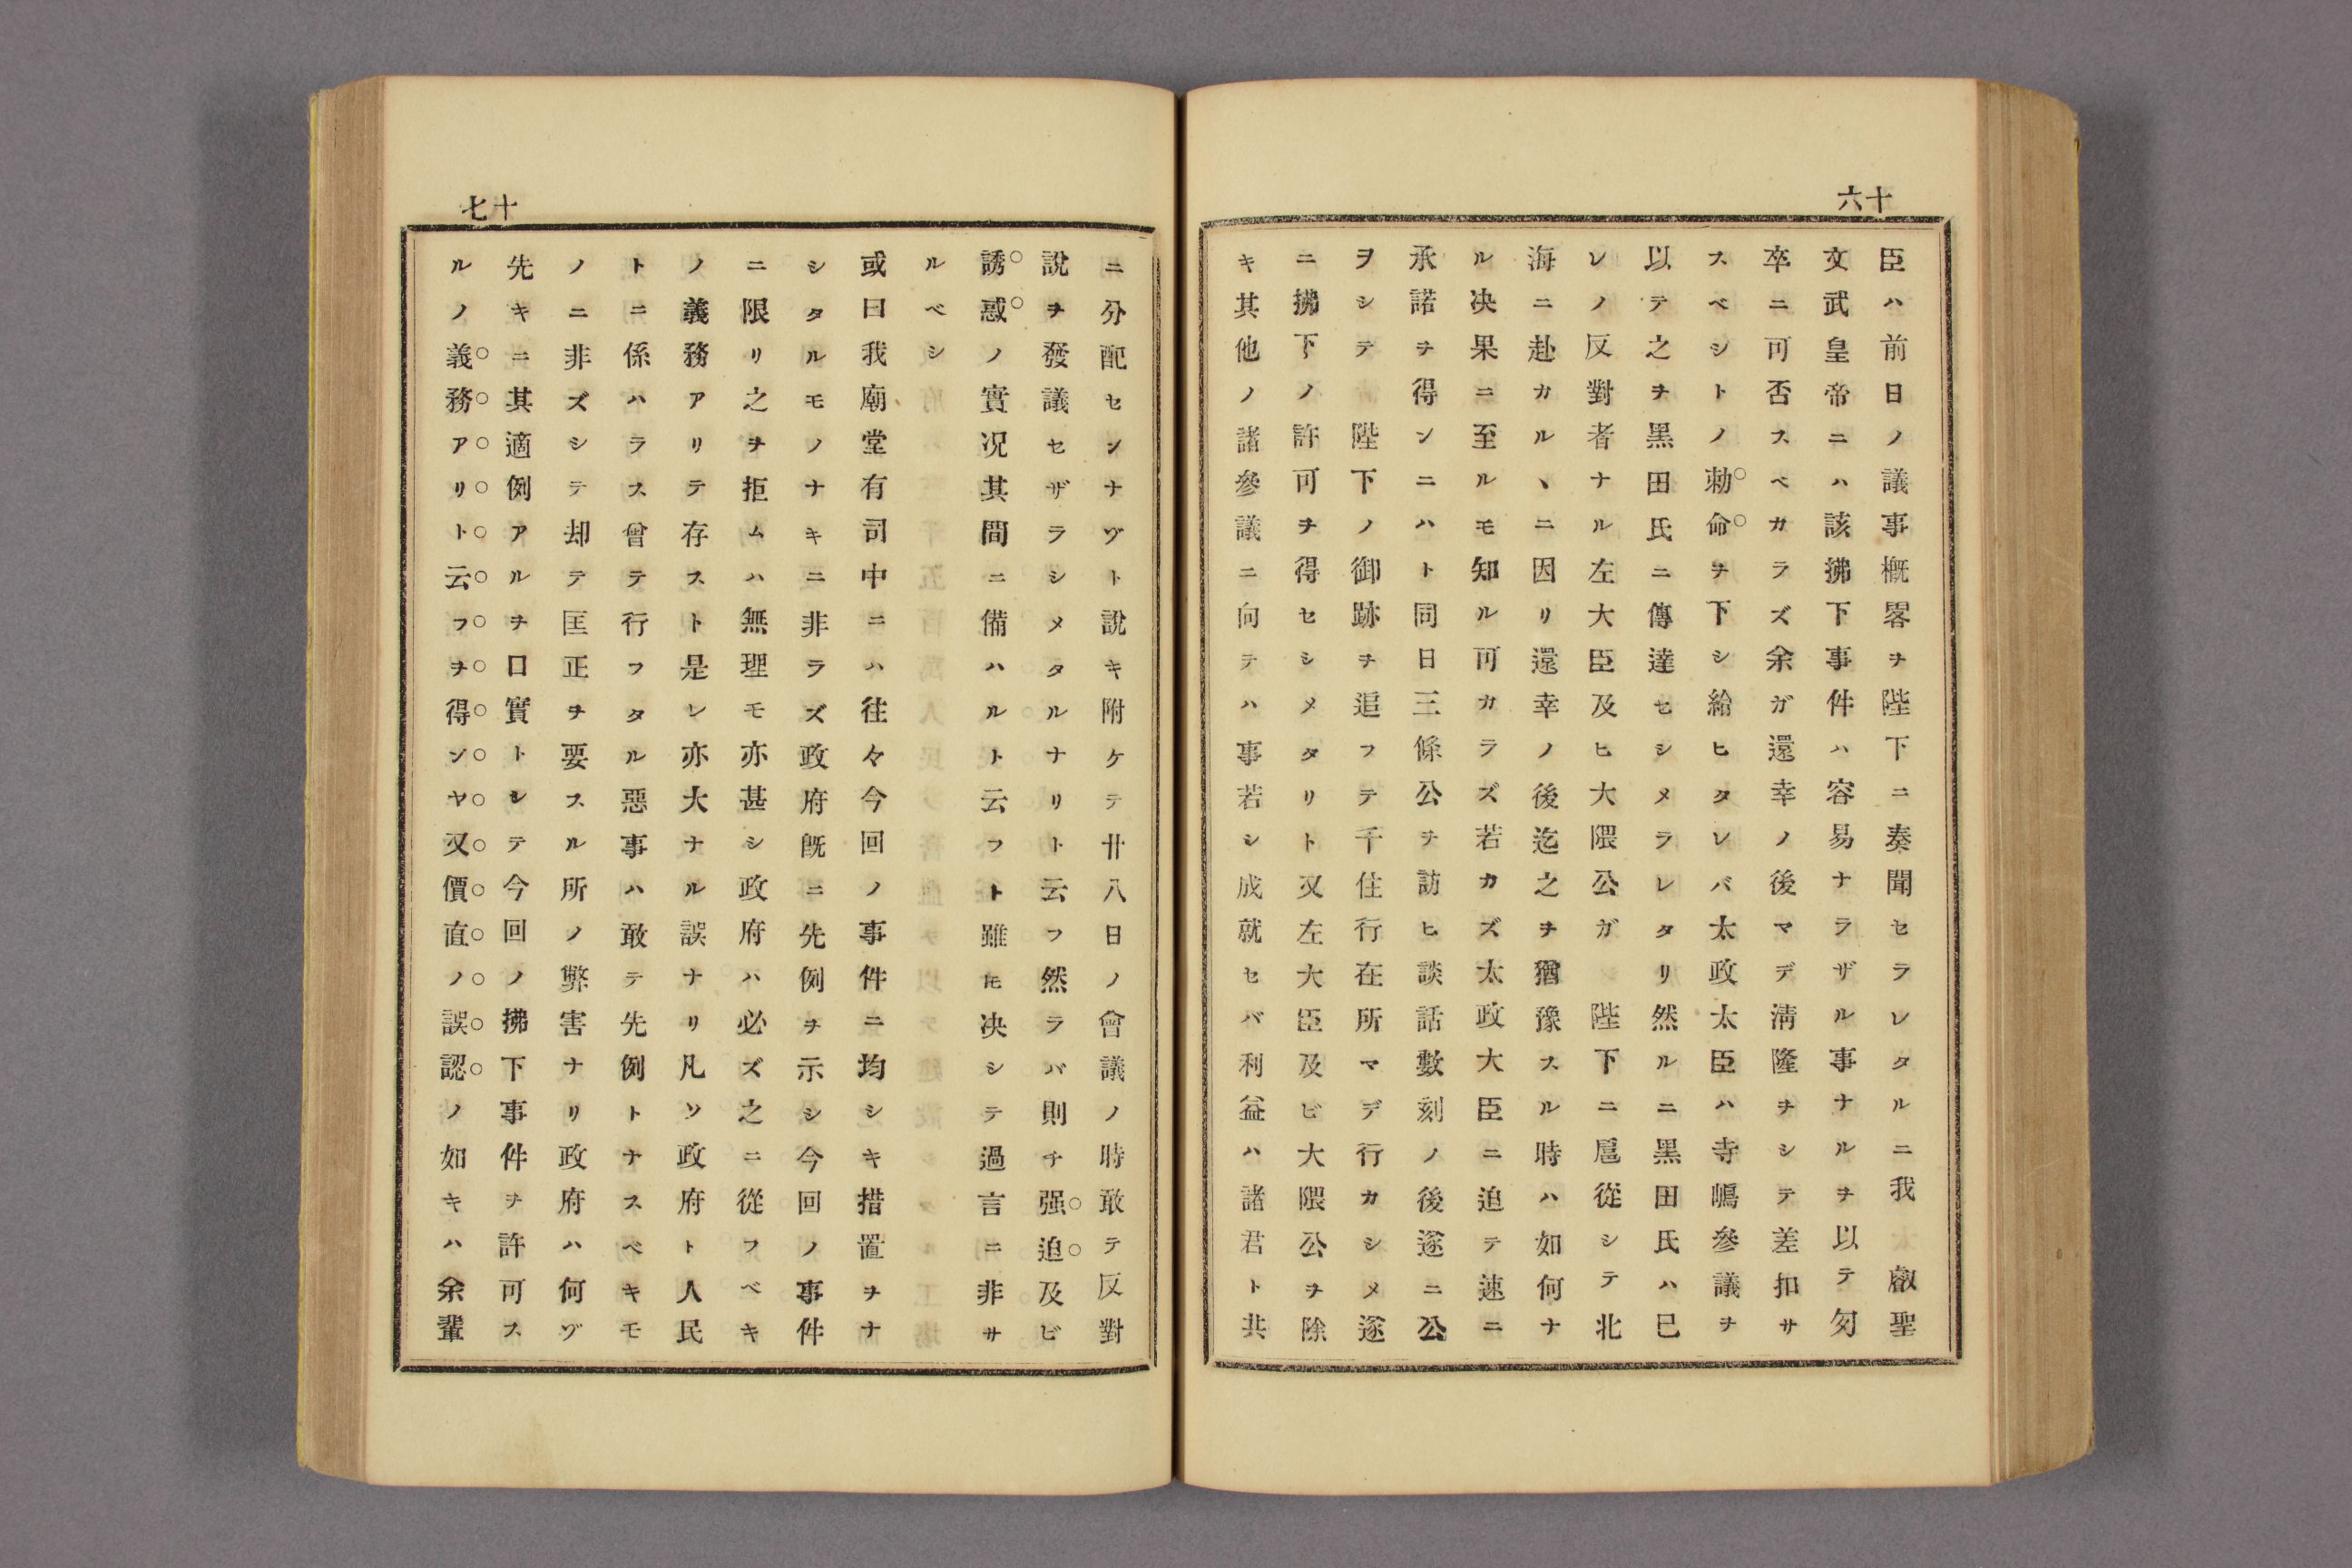 十六
臣ハ前日ノ議事概畧ヲ陛下ニ奏聞セラレタルニ我 叡聖
文武皇帝ニハ該拂下事件ハ容易ナラザル事ナルヲ以テ匇
卒ニ可否スベカラズ余ガ還幸ノ後マデ淸隆ヲシテ差扣サ
スベシトノ勅命ヲ下シ給ヒタレバ太政太臣ハ寺嶋參議ヲ
以テ之ヲ黑田氏ニ傳達セシメラレタリ然ルニ黑田氏ハ已
レノ反對者ナル左大臣及ヒ大隈公ガ 陛下ニ扈從シテ北
海ニ赴カルヽニ因リ還幸ノ後迄之ヲ猶豫スル時ハ如何ナ
ル决果ニ至ルモ知ル可カラズ若カズ太政大臣ニ迫テ速ニ
承諾ヲ得ンニハト同日三條公ヲ訪ヒ談話數刻ノ後遂ニ公
ヲシテ 陛下ノ御跡ヲ追フテ千住行在所マデ行カシメ遂
ニ拂下ノ許可ヲ得セシメタリト又左大臣及ビ大隈公ヲ除
キ其他ノ諸參議ニ向テハ事若シ成就セバ利益ハ諸君ト共
十七
ニ分配センナヅト說キ附ケテ廿八日ノ會議ノ時敢テ反對
說ヲ發議セザラシメタルナリト云フ然ラバ則チ强迫及ビ
誘惑ノ實况其間ニ備ハルト云フト雖𪜈决シテ過言ニ非サ
ルベシ
或曰我廟堂有司中ニハ往々今回ノ事件ニ均シキ措置ヲナ
シタルモノナキニ非ラズ政府旣ニ先例ヲ示シ今回ノ事件
ニ限リ之ヲ拒ムハ無理モ亦甚シ政府ハ必ズ之ニ從フベキ
ノ義務アリテ存スト是レ亦大ナル誤ナリ凡ソ政府ト人民
トニ係ハラス曾テ行フタル惡事ハ敢テ先例トナスベキモ
ノニ非ズシテ却テ匡正ヲ要スル所ノ弊害ナリ政府ハ何ヅ
先キニ其適例アルヲ口實トシテ今回ノ拂下事件ヲ許可ス
ルノ義務アリト云フヲ得ンヤ又價直ノ誤認ノ如キハ余輩